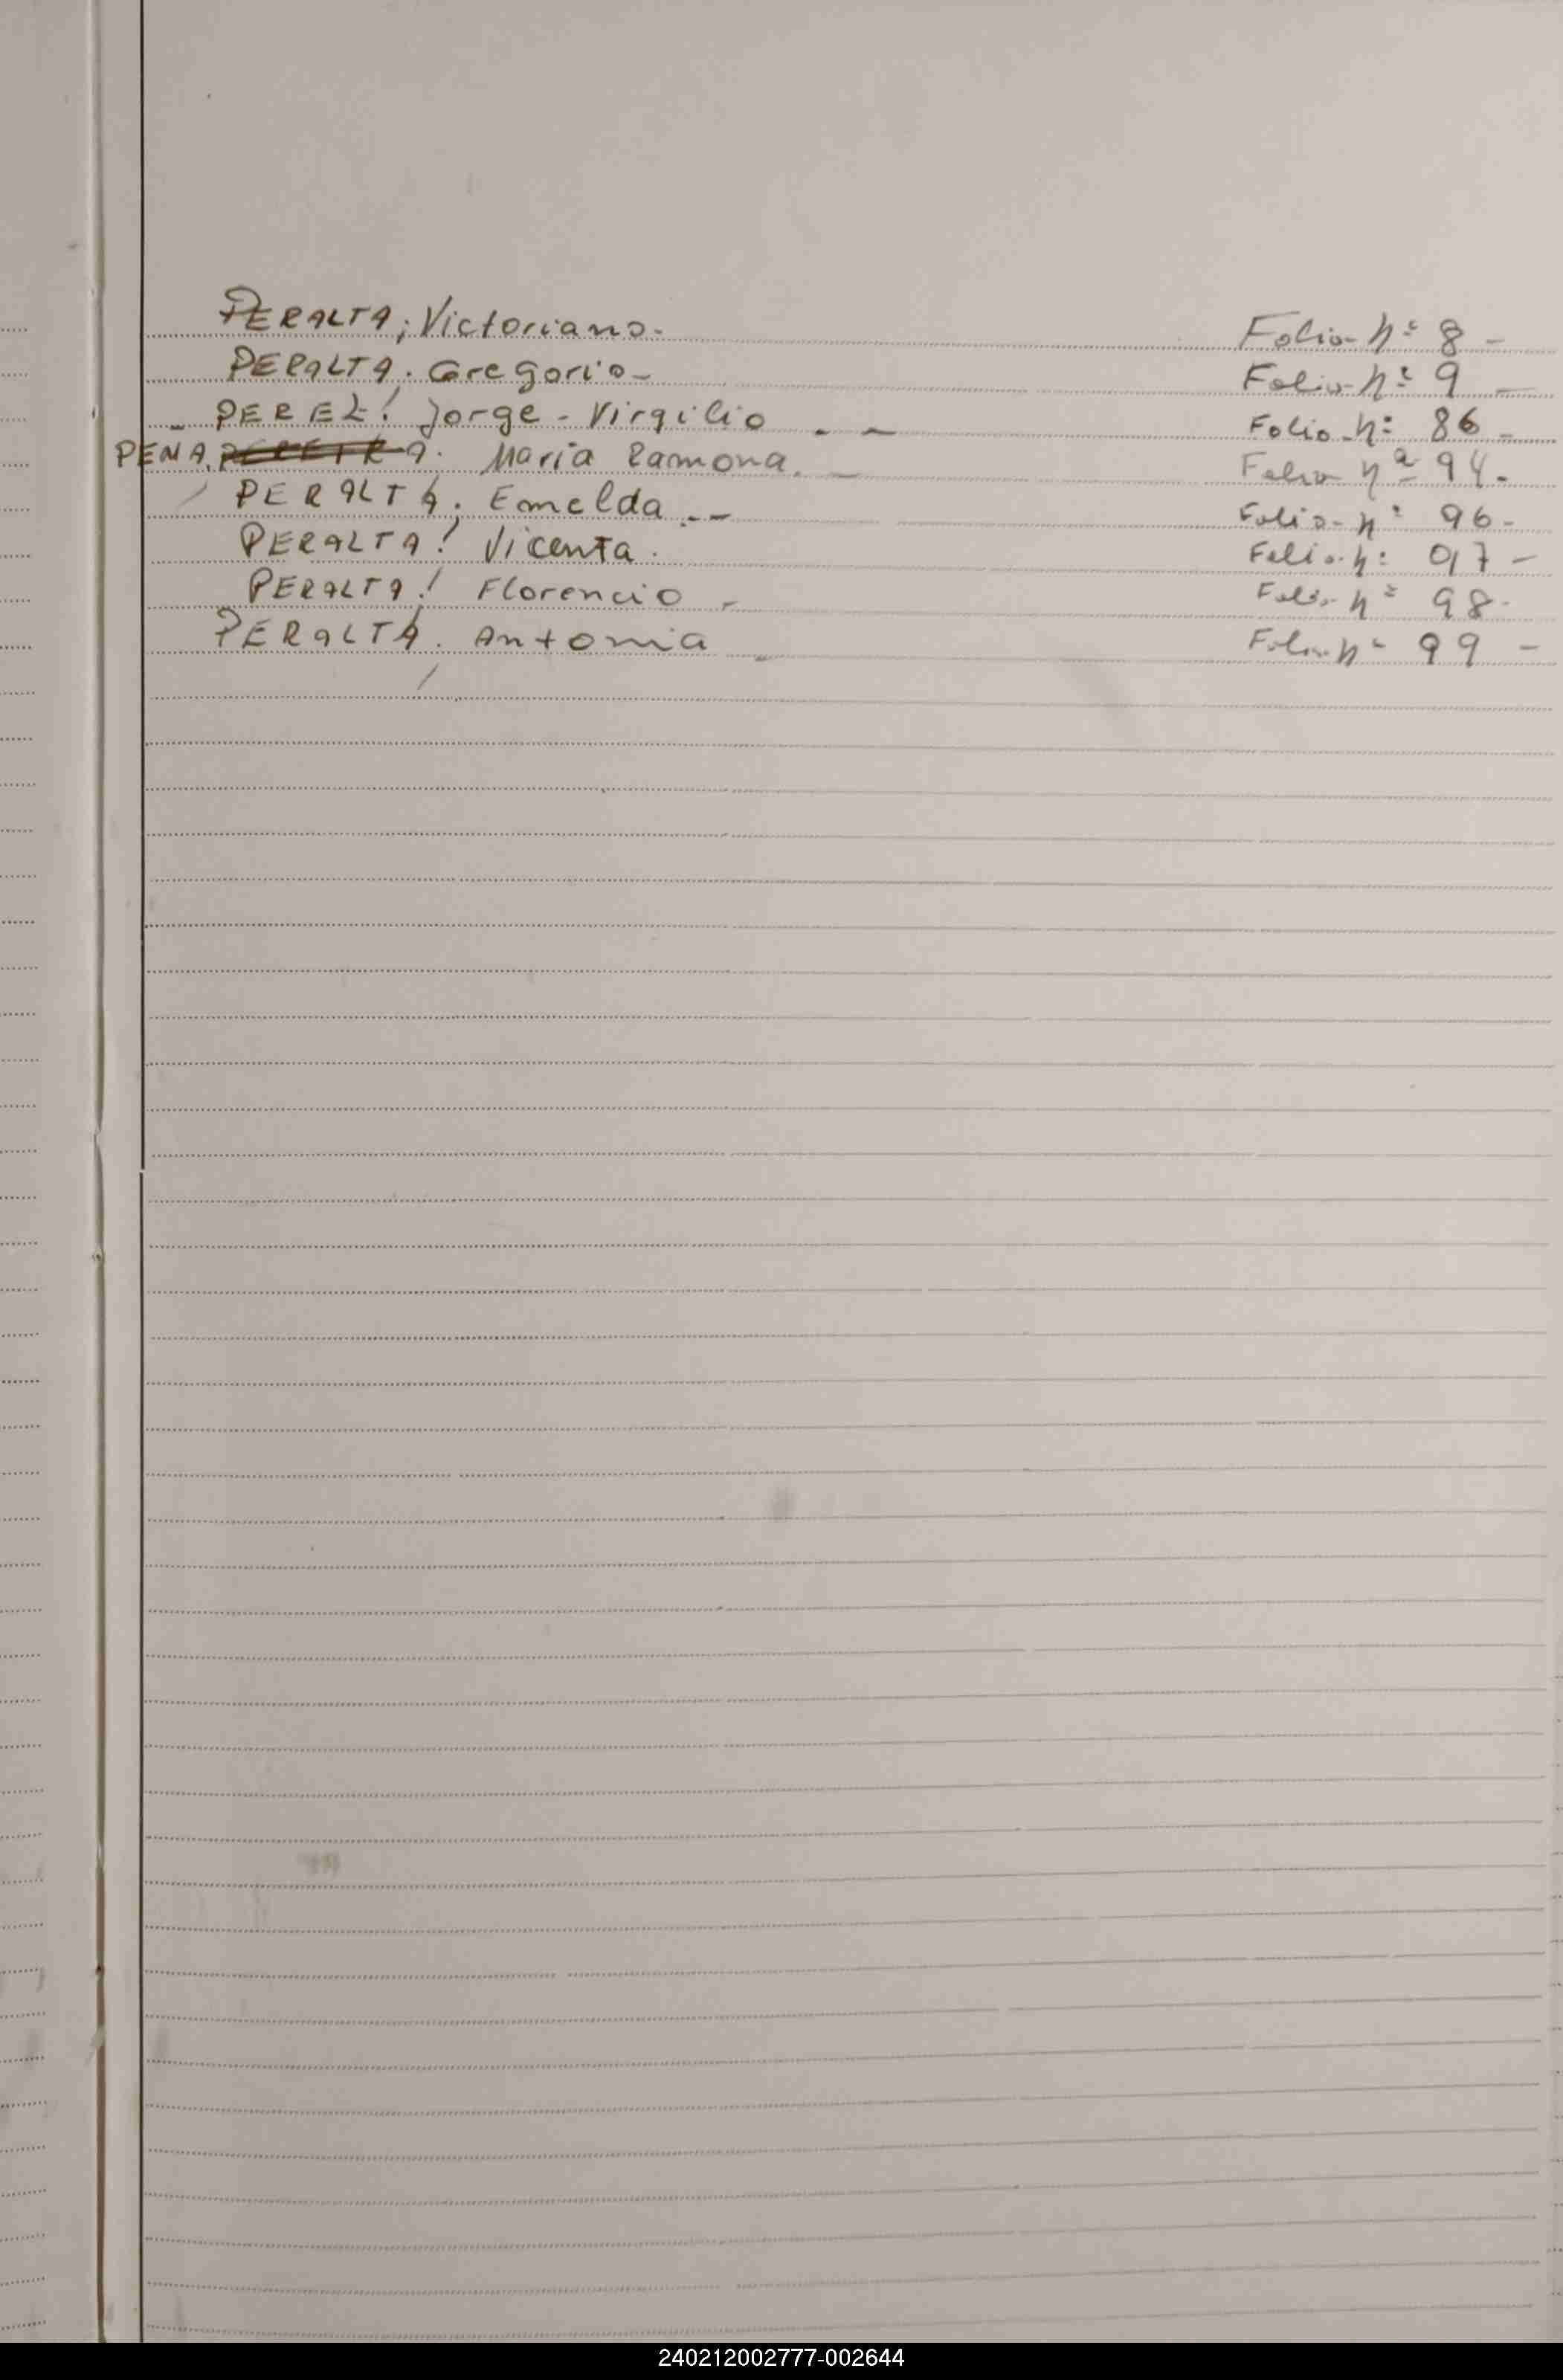 PERALTA, Victoriano. Folio nº 8 -
PERALTA. Gregorio - Folio nº 9 -
- PEREZ! Jorge - Virgilio . - Folio nº 86 -
PENA. María Ramona. - Folio nº 94.
PERALTA. Emelda . - - Folio nº 96 -
PERALTA! Vicenta. Folio nº 97 -
PERALTA! Florencio - Folio nº 98 -
PERALTA. Antonia - Folio nº 99 -
240212002777-002644